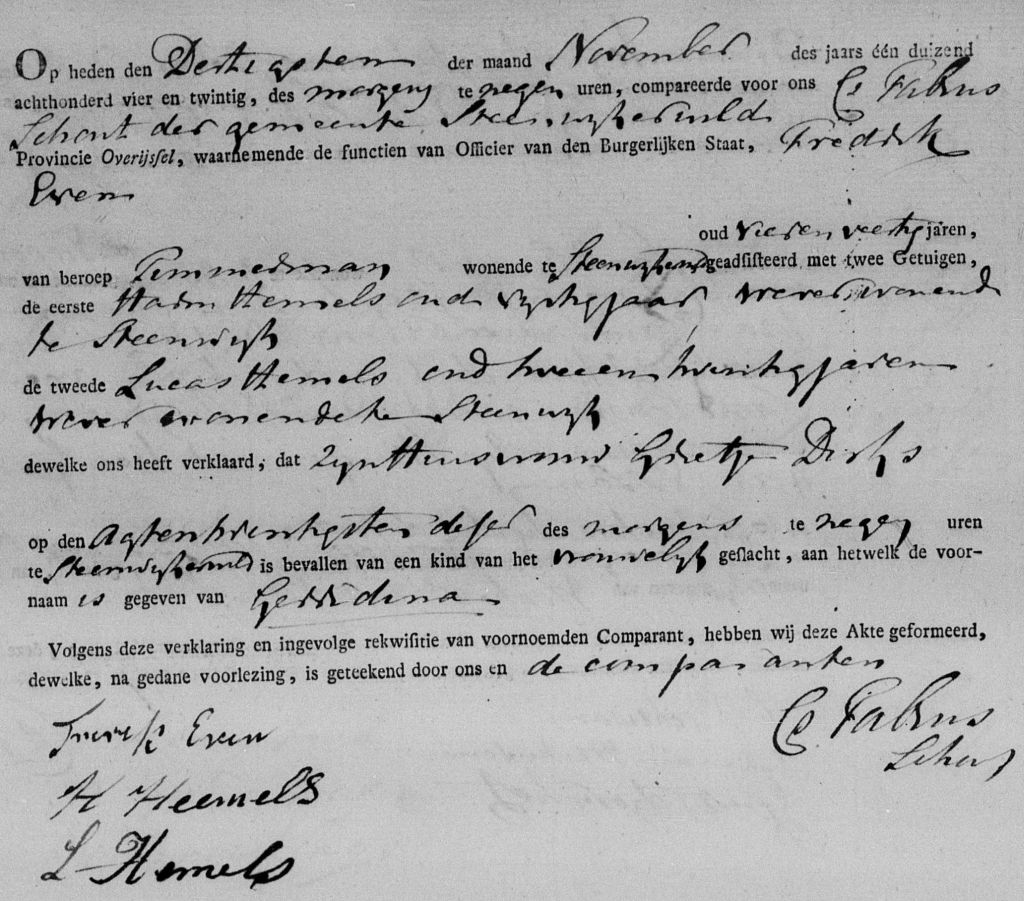 Op heden den Dertigsten der maand November des jaars één duizend
achthonderd vier en twintig, des morgens te negen uren, compareerde voor ons Cs Fabrus
Schout der gemeente Steenwykerwold
Provincie Overijssel, waarnemende de functien van Officier van den Burgerlijken Staat, Fredrik
Even
oud vier en veertig jaren,
van beroep Timmerman wonende te Steenwykerwold geadsisteerd met twee Getuigen,
de eerste Harm Hemels oud vyftig jaar wever wonende
te Steenwyk
de tweede Lucas Hemels oud twee en twintig jaren
wever wonende te Steenwyk
dewelke ons heeft verklaard, dat Zyn Huisvrouw Grietje Dirks
op den Agtentwintigsten deser des morgens te negen uren
te Steenwykerwold is bevallen van een kind van het vrouwelyk geslacht, aan hetwelk de voor-
naam is gegeven van Gerridina
Volgens deze verklaring en ingevolge rekwisitie van voornoemden Comparant, hebben wij deze Akte geformeerd,
dewelke, na gedane voorlezing, is geteekend door ons en de comparanten
Cs Fabrus
Frerik Even
Schout
H Heemels
L Hemels